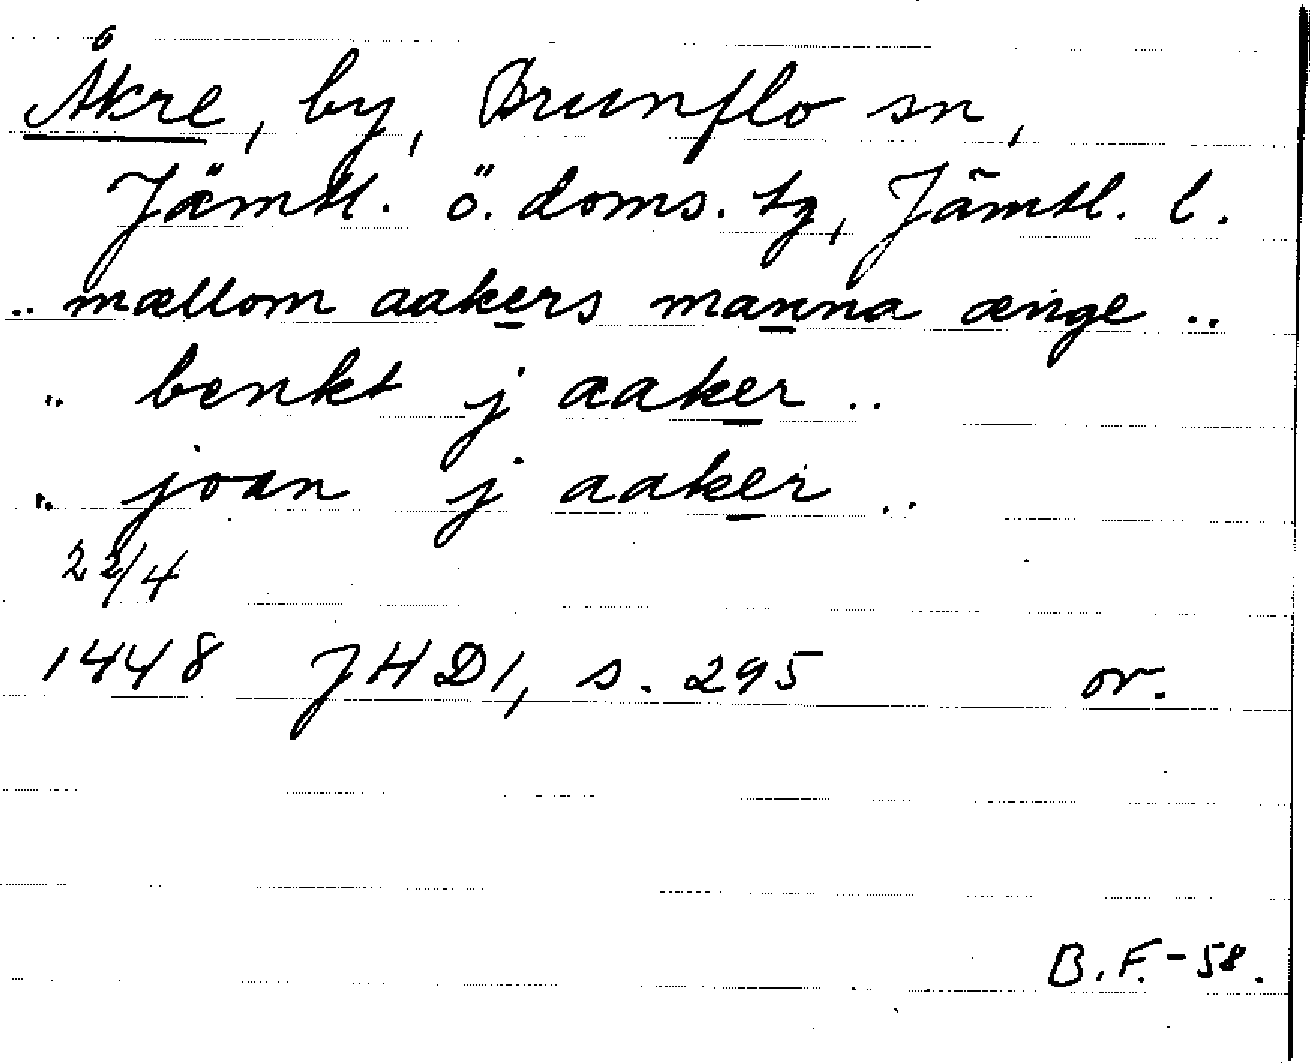 Åkre, by, Brunflo sn,
Jämtl. ö. doms. tg, Jämtl. l.
.. mællom aakers manna ænge ..
.. benkt j aaker ..
.. joan j aaker ..
22/4
1448 JHD1, s. 295 or.
B.F.-58.